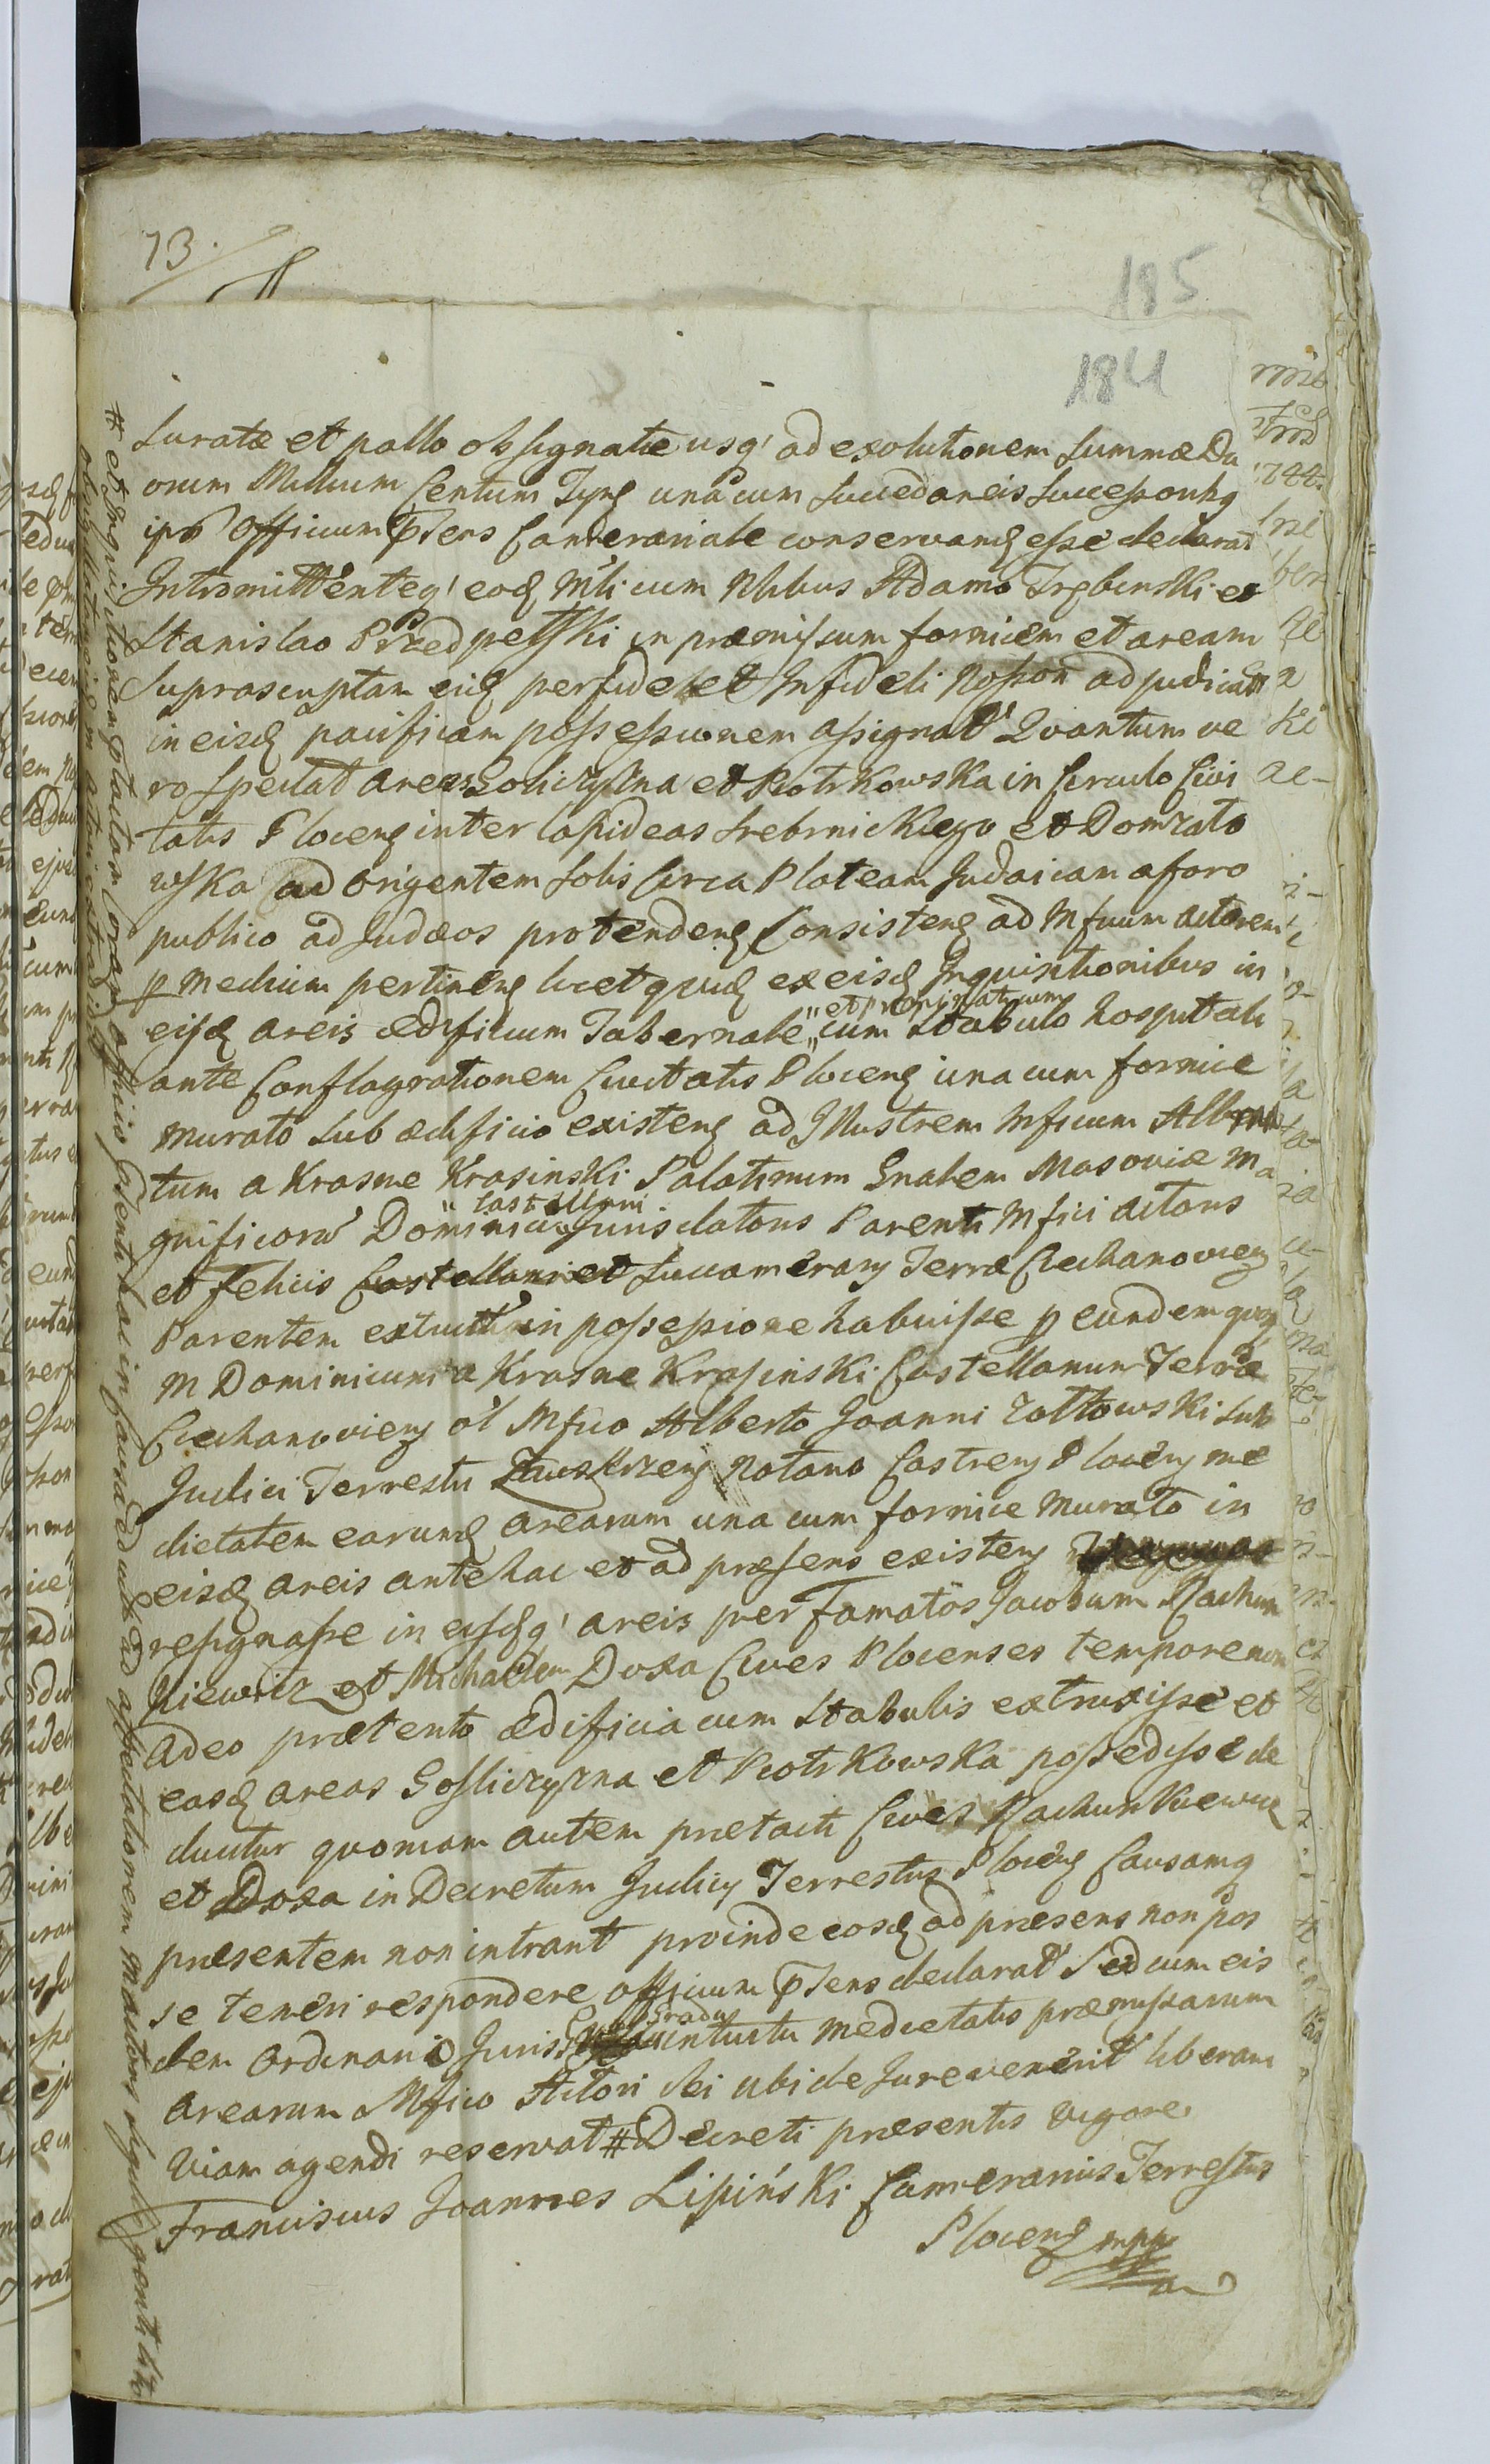 73.
185
184
Suratæ et pallo obsignatæ usq' ad exolutionem Summæ Du
orum Millium Centum Tynf unacum Succedaneis Successoribq
ipso Officium pñens Camerariale conservandq esse declarat
Intromittenteq' eosdq Mfici cum Nbbus Adamo Trębinski et
Stanislao Przedpełski in præmissum fornicem et aream
Suprascriptam eidq perfidelet Infideli Nosson adjudicatt
in eisdq pacificam possessionem assignat Quantum ve
ro spectat areas Goliczyzna et Piotrkowska in Circulo Civi
tatis Plocensq inter lapideas Srebrnickiego et Domrato
wska ad Orientem Solis Circa Plateam Judaicam a foro
publico ad Judæos protendensq Consistensq ad Mficum Actorem
p medium pertinensq licet quidq ex eisdq Inquisitionibus in
eisdq areis ædificium Tabernale „ cum Stabulo hospitali
„ et propinatorium
ante Conflagrationem Civitatis Plocensq una cum fornice
murato sub ædificio existensq ad Illustrem Mficum Alber
tum a Krasne Krasinski Palatinum Gnalem Masoviæ Ma
gnificorũ Dominici „ Jurisdatoris Parentis Mfici Actoris
„ Castellani
et Felicis Castellani et Succamerary Terræ Ciechanoviensq
Parentem extructt in possessione habuisse p eundem quoq
M Dominicum a Krasne Krasinski Castellanum Terræ
Ciechanoviensq ol Mfico Alberto Joanni Zołtowski Sub
Judici Terrestri Zawskrzensq Notario Castrensq Plocensq me
dietatem earundq arearum una cum fornice murato in
eisdq areis antehac et ad præsens existensq
resignasse in eisdq' areis per Famatos Jacobum Rachun
kiewicz et Michaelem Doxa Cives Plocenses tempore non
adeo prætento ædificia cum Stabulis extruxisse et
easdq areas Gosliczyzna et Piotrkowska possedisse de
ducitur quoniam autem prætacti Cives Rachunkiewicz
et Doxa in Decretum Judicy Terrestris Plocensq Causamq
præsentem non intrant proinde eosdq ad præsens non pos
se teneri respondere officium pñens declarat Sed cum eis
dem Ordinario Juris Gradu intuitu medietatis præmissarum
arearum Mfico Actori Sibi ubi de Jure venerit liberam
Viam agendi reservat # Decreti præsentis vigore
Franciscus Joannes Lipiński Camerarius Terrestris
Plocensq mpp
# et Inquisitionem pstactam coram officio pñenti hac in causa
ad affectationem